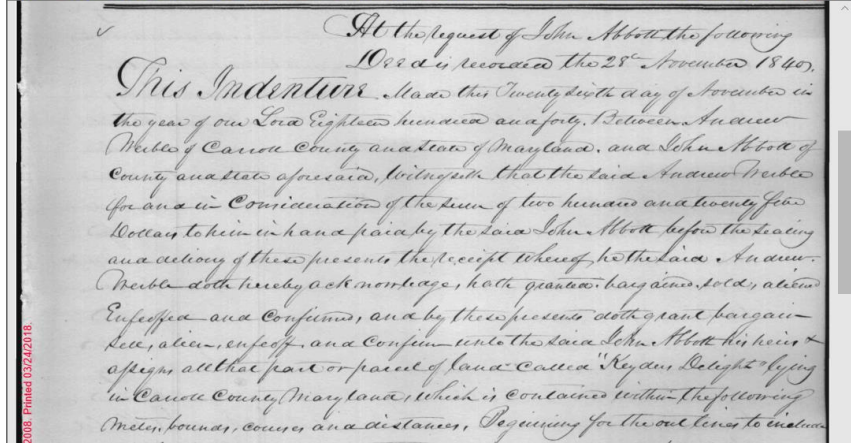 At the request of John Abbott the following
Deed is recorded the 28th November 1840.
This Indenture Made this Twenty sixth day of November in
the year of our Lord Eighteen hundred and forty. Between Andrew
Werble of Carroll County and State of Maryland. and John Abbott of
County and State aforesaid, Witnesseth that the said Andrew Werble
for and in Consideration of the sum of two hundred and twenty five
Dollars to him in hand paid by the said John Abbott before the sealing
and delivery of these presents the receipt whereof he the said Andrew
Werble doth hereby acknowledge, hath granted. bargained, sold, aliened
Enfeoffed and Confirmed, and by these presents doth grant bargain
sell, alien, enfeoff, and Confirm unto the said John Abbott his heirs &
assigns all that part or parcel of land Called "Keyders Delight" lying
in Carroll County Maryland, which is contained within the following
metes, bounds, courses and distances, Beginning for the out lines to include
2008. Printed 03/24/2018.